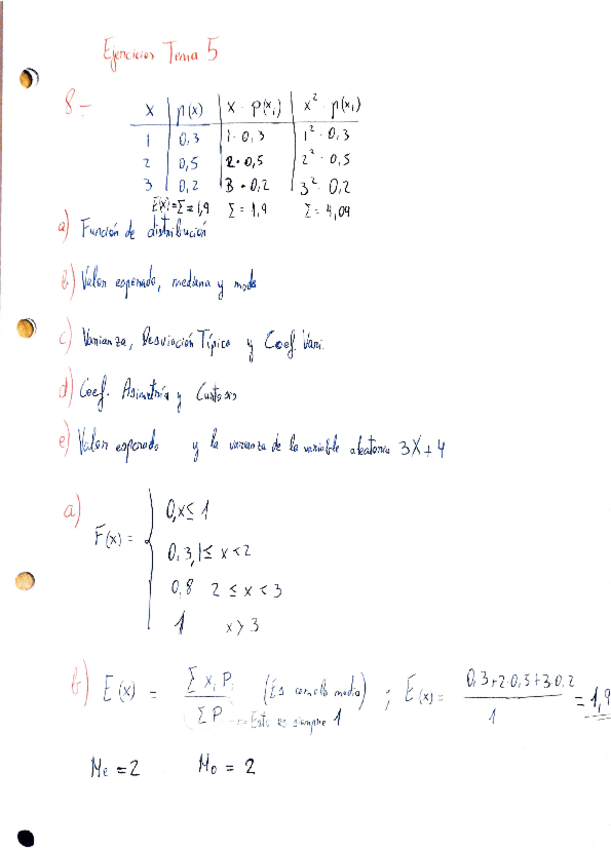 Ejercicios Tema 5
8-
x | p(x) | x · p(xi) | x² · p(xi)
1 | 0,3 | 1 · 0,3 | 1² · 0,3
2 | 0,5 | 2 · 0,5 | 2² · 0,5
3 | 0,2 | 3 · 0,2 | 3² · 0,2
E(x)=Σ=1,9 Σ = 1,9 Σ = 4,09
a) Función de distribución
b) Valor esperado, mediana y moda
c) Varianza, Desviación Típica y Coef. Vari.
d) Coef. Asimetría y Curtosis
e) Valor esperado y la varianza de la variable aleatoria 3X+4
a)
F(x) =
0, x ≤ 1
0,3, 1 ≤ x < 2
0,8 2 ≤ x < 3
1 x > 3
b) E(x) = Σ xi Pi / Σ P (Es como la media) ; E(x) = 0,3+2·0,5+3·0,2 / 1 = 1,9
Esto es siempre 1
Me = 2 Mo = 2